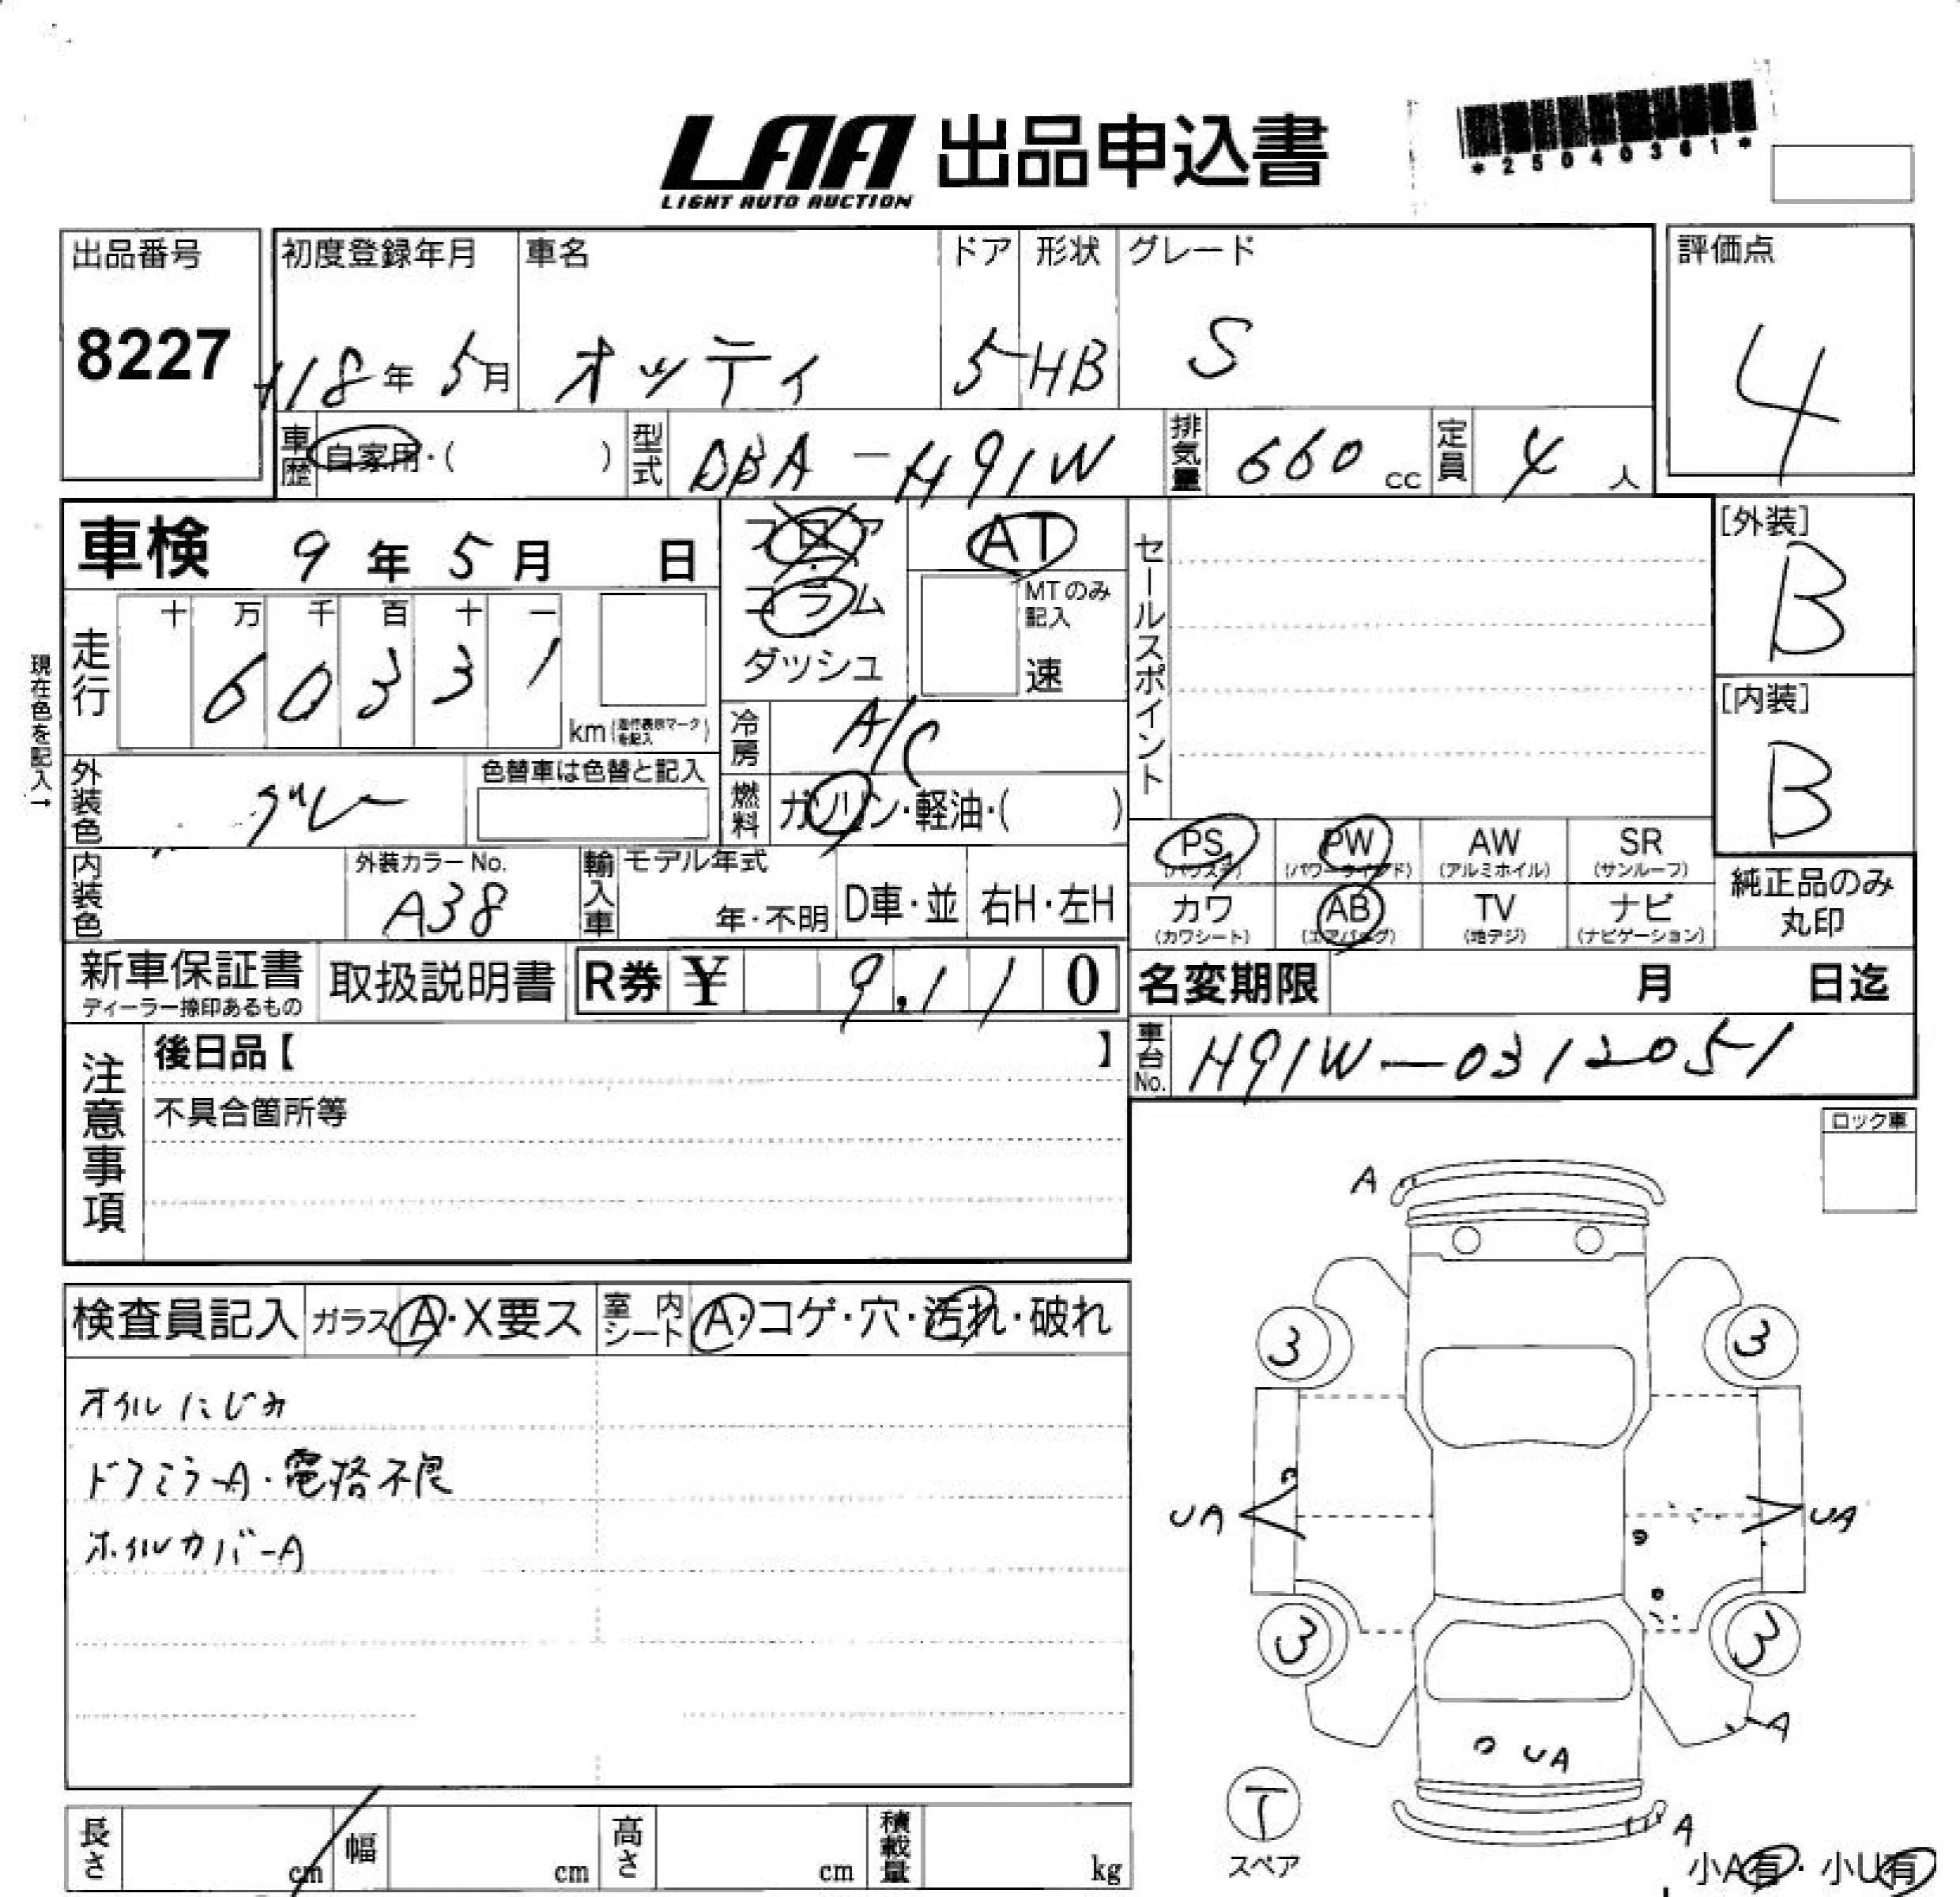 LAA 出品申込書
LIGHT AUTO AUCTION
*25040361*
出品番号 初度登録年月 車名 ドア 形状 グレード 評価点
8227 H18年 5月 オッティ 5 HB S 4
車歴 自家用・( ) 型式 DBA-H91W 排気量 660 cc 定員 4 人
車検 9年 5月 日 フロア AT セールスポイント [外装]
コラム MTのみ記入 B
ダッシュ 速
現在色を記入→
走行 十 万 千 百 十 一
6 0 3 3 1
km (走行表示マークを記入)
[内装]
B
冷房 A/C
外装色 グレー 色替車は色替と記入 燃料 ガソリン・軽油・( )
PS PW AW SR
(パワステ) (パワーウインド) (アルミホイル) (サンルーフ)
内装色 外装カラーNo. 輸入車 モデル年式
A38 年・不明 D車・並 右H・左H
カワ AB TV ナビ
(カワシート) (エアバッグ) (地デジ) (ナビゲーション)
純正品のみ
丸印
新車保証書 取扱説明書 R券 ¥ 9,110 名変期限 月 日迄
ディーラー捺印あるもの
車台No. H91W-0312051
注意事項 後日品【 】
不具合箇所等
ロック車
A
検査員記入 ガラス A・X要ス 室内シート A・コゲ・穴・汚れ・破れ
3 3
オイルにじみ
ドアミラーA・電格不良
UA UA
ホイルカバーA
3 3
A
UA
T
スペア
A
長さ cm 幅 cm 高さ cm 積載量 kg
小A有・小U有